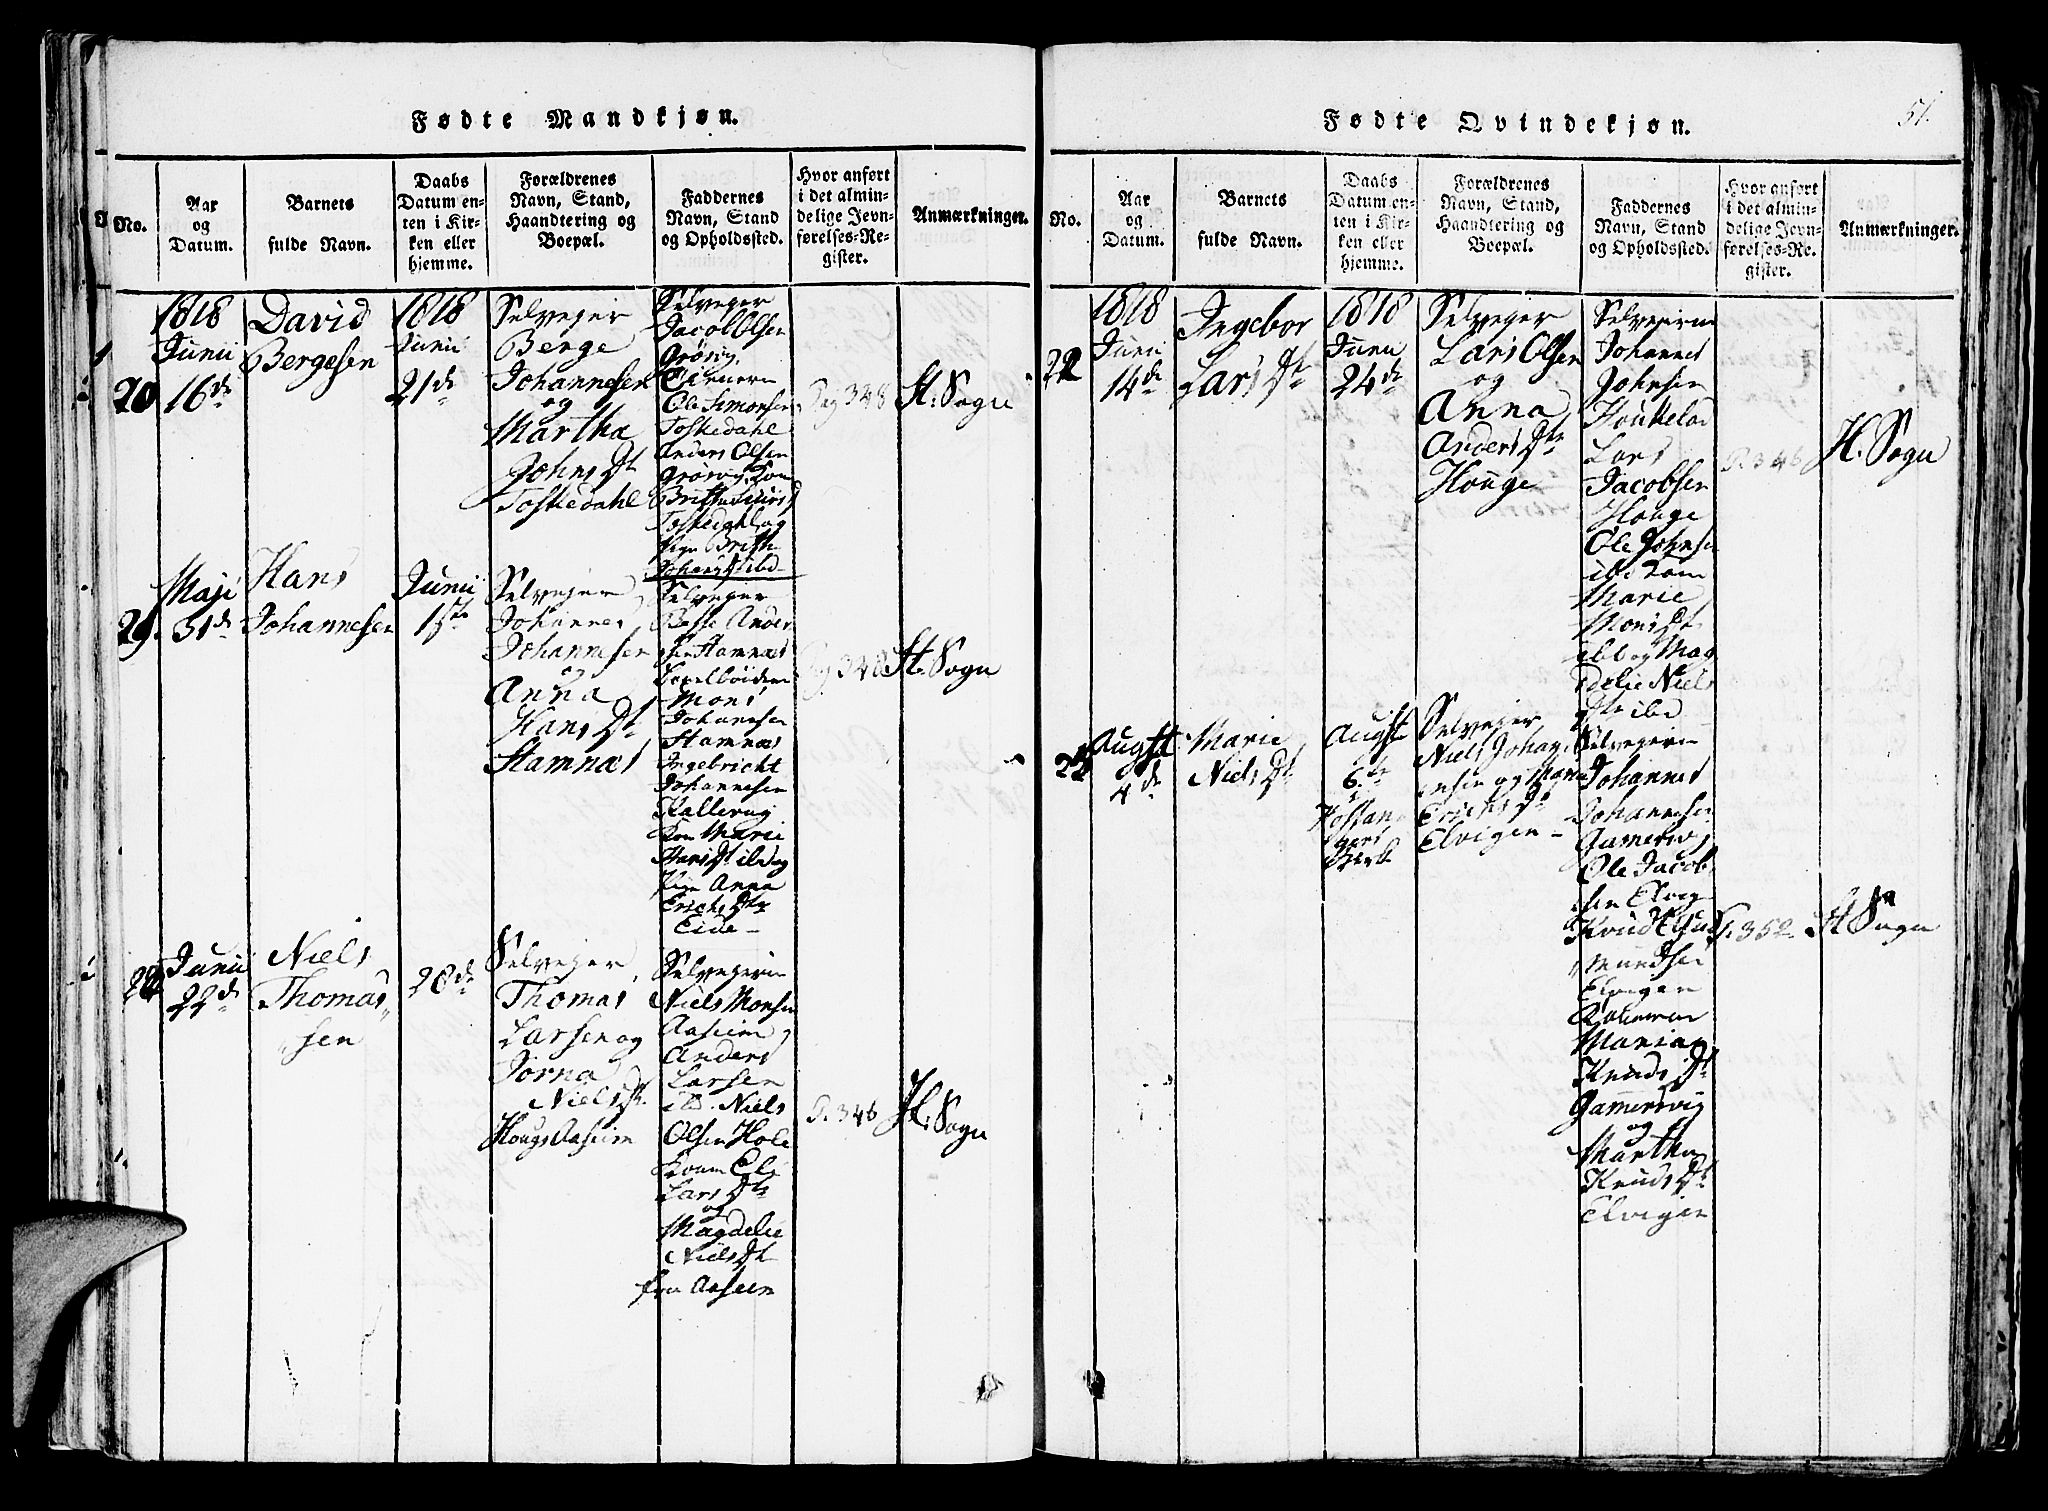 Fødte Mandkjøn.
No.
Aar
og
Datum.
Barnets
fulde Navn.
Daabs
Datum en-
ten i Kir-
ken eller
hjemme.
Forældrenes
Navn, Stand,
Haandtering og
Boepæl.
Faddernes
Navn, Stand
og Opholdssted.
Hvor anført
i det almin-
delige Jevn-
førelses-Re-
gister.
Anmærkninger.
20
1818
Junii
16de
David
Bergesen
1818
Junii
21de
Selvejer
Berge
Johannesen
og
Martha
Johns Dt
Toskedahl
Selvejer
Jacob Olsen
Grøsvig
Ole Simonsen
Toskedahl
Anders Olsen
Grøsvig Kon
Toskedahl og
Pige Britth
Johans Dt ibd
348
H: Sogn
Maji
31de
Hans
Johannesen
Junii
1ste
Selvejer
Johannes
Johannesen
og
Anna
Hans Dt
Stamnæs
Selvejer
Besse Ander
sen Stamnæs
Mons
Johannesen
Stamnæs
Ingebricht
Johannesen
Kallevig
Kon Marie
Hans Dt ibd og
Pige Anna
Erichs Dtr
Eide
348
H. Sogn
Junii
22de
Niels
Thomas
sen
28de
Selvejer
Thomas
Larsen og
Niels Dt
Selvejerne
Niels Monsen
Aaseim
Anders
Larsen
ibd. Niels
Olsen Hole
Kone Eli
Lars Dtr
og
Magdelie
Niels Dt
fra Aaseim
P. 346
H: Sogn
Fødte Qvindekjøn.
51.
No.
Aar
og
Datum.
Barnets
fulde Navn.
Daabs
Datum en-
ten i Kir-
ken eller
hjemme.
Forældrenes
Navn, Stand,
Haandtering og
Boepæl.
Faddernes
Navn, Stand
og Opholdssted.
Hvor anført
i det almin-
delige Jevn-
førelses-Re-
gister.
Anmærkninger.
22
1818
Junii
14de
Ingebor
Lars Dt
1818
Junii
24de
Selvejer
Lars Olsen
og
Anna
Anders Dtr
Houge
Selvejerne
Johannes
Johnsen
Lars
Jacobsen
Houge
Ole Johnsen
ibd Kone
Marie
Mons Dt
ibd og Mag
delie Niels
Dtr ibd
P. 346
H. Sogn
Augst
4de
Marie
Niels Dt
Augst
6te
Selvejer
Niels Johan
nesen og
Erichs Dt
Elvigen
Selvejerne
Johannes
Johannesen
Gamersvig
Ole Jacob
sen Elvig
Knud
mundsen
Elvigen
Maria
Knuds Dt
Gamersvig
og
Martha
Knuds Dt
Elvigen
P. 352
H Sogn